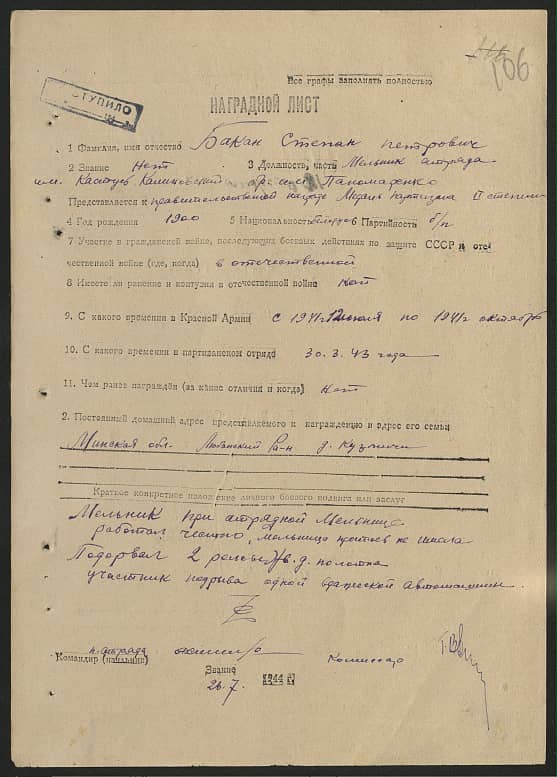 106
Все графы заполнять полностью
СТУПИЛО
НАГРАДНОЙ ЛИСТ
1 Фамилия, имя отчество Бакан Степан Петрович
2 Звание Нет 3 Должность, часть Мельник отряда
им. Калиновский Пономаренко
Представляется к правительственной награде Медаль партизана II степени
4 Год рождения 1900 5 Национальность 6 Партийность б/п
7 Участие в гражданской войне, последующих боевых действиях по защите СССР и оте
чественной войне (где, когда) в отечественной
8 Имеет ли ранение и контузии в отечественной войне нет
9. С какого времени в Красной Армии с 1941г июля по 1941г октябрь
10. С какого времени в партизанском отряде 30.3.43 года
11. Чем ранее награждён (за какие отличия и когда) нет
2. Постоянный домашний адрес представляемого к награждению и адрес его семьи
Минская обл. Любанский Ра-н д. Кузьмичи
Краткое конкретное изложение личного боевого подвига или заслуг
Мельник при отрядной Мельнице
работал честно, мельница простоев не имела
Подорвал 2 рельсы ж.д. полотна
участник подрыва одной вражеской автомашины.
н. отряда Комиссар
Командир (начальник)
Звание
26.7. 1944 г.